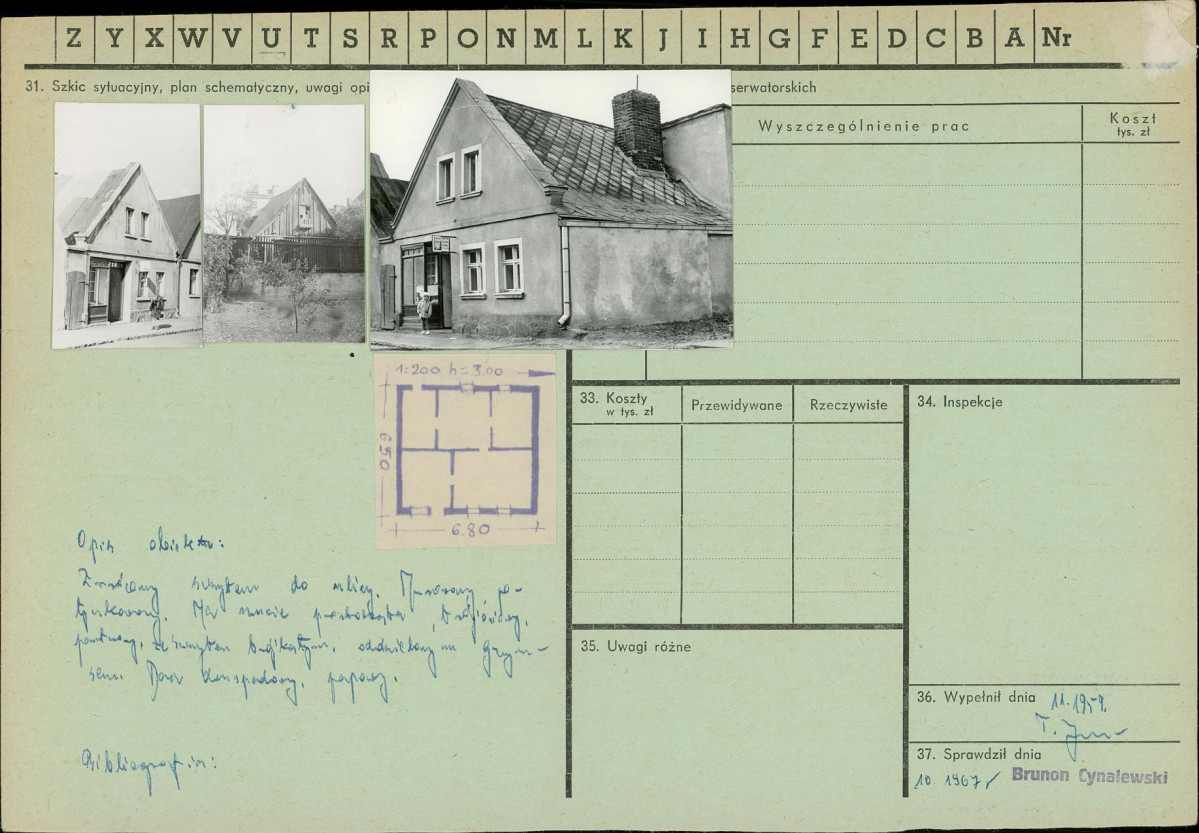 Z Y X W V U T S R P O N M L K J I H G F E D C B A Nr
31. Szkic sytuacyjny, plan schematyczny, uwagi opi
serwatorskich
Wyszczególnienie prac
Koszt
tys. zł
1:200 h=3.00
650
6.80
33. Koszty
w tys. zł
Przewidywane
Rzeczywiste
34. Inspekcje
Opis obiektu:
Zwrócony szczytem do ulicy. Murowany po-
tynkowany. Na rzucie prostokąta,
parterowy, ze szczytem trójkątnym, oddzielonym gzym-
sem. Dach dwuspadowy, papowy.
Bibliografia:
35. Uwagi różne
36. Wypełnił dnia
11.1959.
37. Sprawdził dnia
10. 1967
Brunon Cynalewski